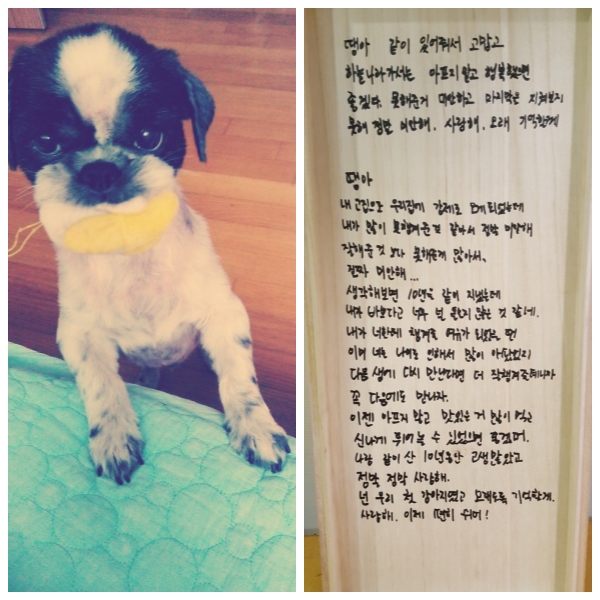 땡아 같이 있어줘서 고맙고
하늘나라가서는 아프지말고 행복했으면
좋겠다. 못해준거 미안하고 마지막은 지켜보지
못해 정말 미안해. 사랑해. 오래 기억할게
땡아
내 고집으로 우리집에 강제로 오게 되었는데
내가 많이 못챙겨준것 같아서 정말 미안해
잘해준 것 보다 못해준게 많아서,
진짜 미안해...
생각해보면 10년을 같이 지냈는데
내가 바쁘다고 너무 널 챙기지 않은 것 같네.
내가 너한테 챙겨줄 여유가 되었을 땐
이미 너는 나이로 인해서 많이 아팠었지
다음 생에 다시 만난다면 더 잘챙겨줄테니까
꼭 다음에도 만나자.
이젠 아프지 말고 맛있는거 많이 먹고
신나게 뛰어놀 수 있었으면 좋겠어.
나랑 같이 산 10년동안 고생많았고
정말 정말 사랑해.
넌 우리 첫 강아지였고 오래도록 기억할게.
사랑해. 이제 편히 쉬어!